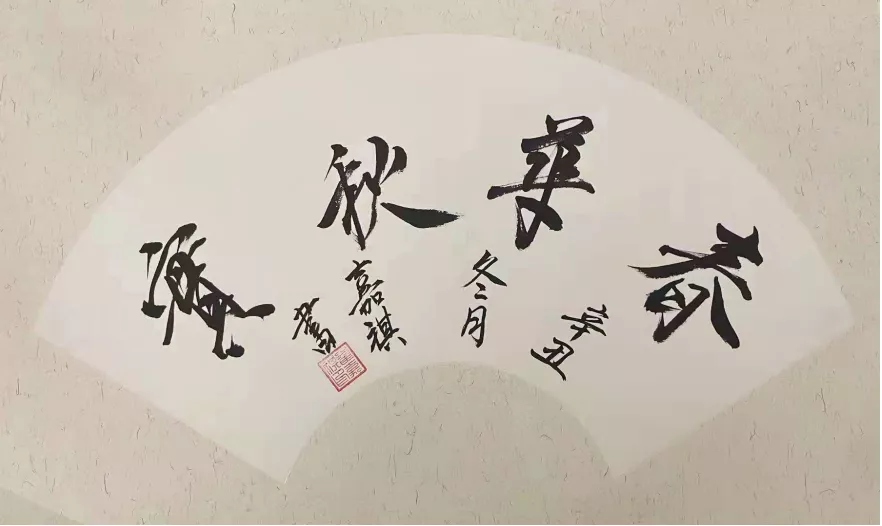 春華秋實
辛丑
冬月
嘉祺
書